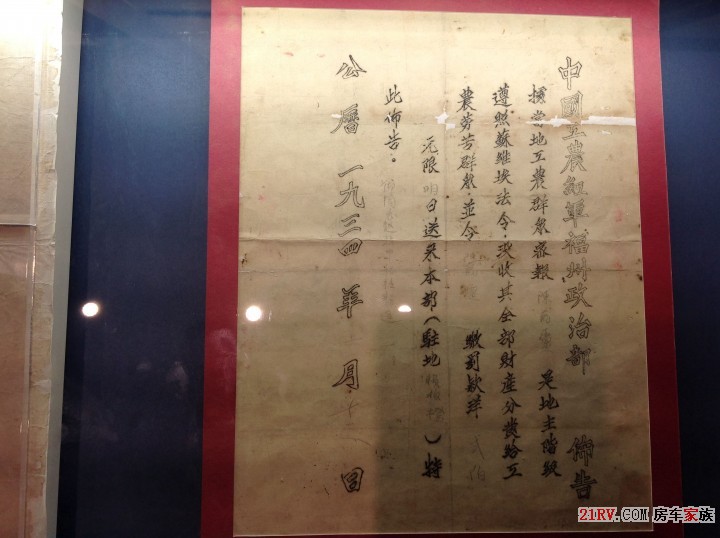 中國工農紅軍福州政治部 佈告
據當地工農群眾密報 是地主階級
遵照蘇維埃法令·沒收其全部財產分發給工
農勞苦群眾·並令 繳到款洋
元限明日送來本部(駐地 )特
此佈告。
公曆一九三四年 月 日
21RV.COM 房车家族